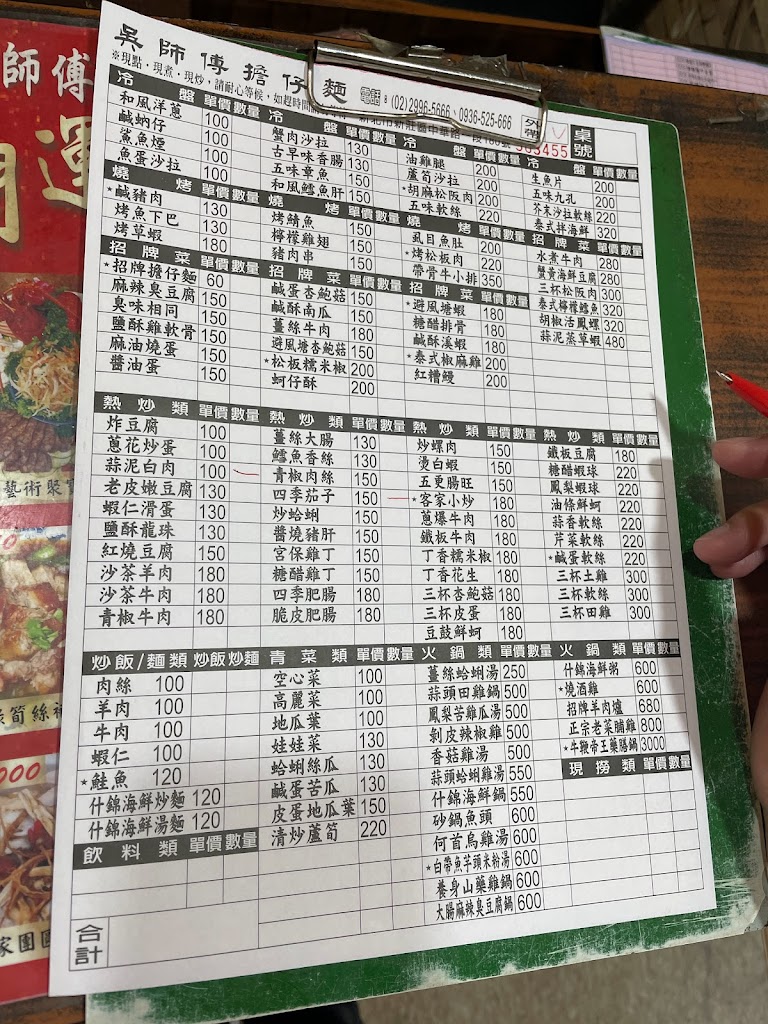 吳師傅擔仔麵
電話：(02)2996-5666、0936-525-666
外帶
桌號
冷盤 單價 數量
和風洋蔥 100
鹹蚋仔 100
鯊魚煙 100
魚蛋沙拉 100
燒烤 單價 數量
*鹹豬肉 130
烤魚下巴 130
烤草蝦 180
招牌菜 單價 數量
*招牌擔仔麵 60
麻辣臭豆腐 150
臭味相同 150
鹽酥雞軟骨 150
麻油燒蛋 150
醬油蛋 150
冷盤 單價 數量
蟹肉沙拉 130
古早味香腸 130
五味章魚 150
和風鱈魚肝 150
燒烤 單價 數量
烤鯖魚 150
檸檬雞翅 150
豬肉串 150
招牌菜 單價 數量
鹹蛋杏鮑菇 150
鹹酥南瓜 150
薑絲牛肉 180
避風塘杏鮑菇 150
*松板糯米椒 200
蚵仔酥 200
冷盤 單價 數量
油雞腿 200
蘆筍沙拉 200
*胡麻松阪肉 200
五味軟絲 220
燒烤 單價 數量
虱目魚肚 200
*烤松板肉 220
帶骨牛小排 350
招牌菜 單價 數量
*避風塘蝦 180
糖醋排骨 180
鹹酥溪蝦 180
*泰式椒麻雞 200
紅糟鰻 200
冷盤 單價 數量
生魚片 200
五味九孔 200
芥末沙拉軟絲 220
泰式拌海鮮 320
招牌菜 單價 數量
水煮牛肉 280
蟹黃海鮮豆腐 280
三杯松阪肉 300
泰式檸檬鱈魚 320
胡椒活鳳螺 320
蒜泥蒸草蝦 480
熱炒類 單價 數量
炸豆腐 100
蔥花炒蛋 100
蒜泥白肉 100
老皮嫩豆腐 130
蝦仁滑蛋 130
鹽酥龍珠 130
紅燒豆腐 150
沙茶羊肉 180
沙茶牛肉 180
青椒牛肉 180
熱炒類 單價 數量
薑絲大腸 130
鱈魚香絲 130
青椒肉絲 150
四季茄子 150
炒蛤蜊 150
醬燒豬肝 150
宮保雞丁 150
糖醋雞丁 150
四季肥腸 180
脆皮肥腸 180
熱炒類 單價 數量
炒螺肉 150
燙白蝦 150
五更腸旺 150
*客家小炒 180
蔥爆牛肉 180
鐵板牛肉 180
丁香糯米椒 180
丁香花生 180
三杯杏鮑菇 180
三杯皮蛋 180
豆鼓鮮蚵 180
熱炒類 單價 數量
鐵板豆腐 180
糖醋蝦球 220
鳳梨蝦球 220
油條鮮蚵 220
蒜香軟絲 220
芹菜軟絲 220
*鹹蛋軟絲 220
三杯土雞 300
三杯軟絲 300
三杯田雞 300
炒飯/麵類 炒飯 炒麵
肉絲 100
羊肉 100
牛肉 100
蝦仁 100
*鮭魚 120
什錦海鮮炒麵 120
什錦海鮮湯麵 120
飲料類 單價 數量
合計
青菜類 單價 數量
空心菜 100
高麗菜 100
地瓜葉 100
娃娃菜 130
蛤蜊絲瓜 130
鹹蛋苦瓜 130
皮蛋地瓜葉 150
清炒蘆筍 220
火鍋類 單價 數量
薑絲蛤蜊湯 250
蒜頭田雞鍋 500
鳳梨苦雞瓜湯 500
剝皮辣椒雞 500
香菇雞湯 500
蒜頭蛤蜊雞湯 550
什錦海鮮鍋 550
砂鍋魚頭 600
何首烏雞湯 600
*白帶魚芋頭米粉湯 600
養身山藥雞鍋 600
大腸麻辣臭豆腐鍋 600
火鍋類 單價 數量
什錦海鮮粥 600
*燒酒雞 600
招牌羊肉爐 680
正宗老菜脯雞 800
*牛鞭帝王藥膳鍋 3000
現撈類 單價 數量
師傅